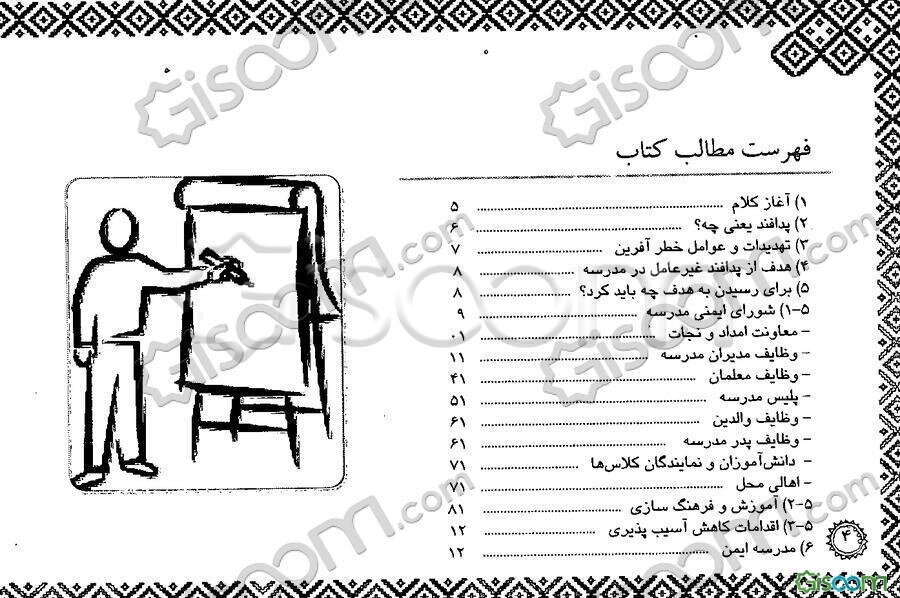 فهرست مطالب کتاب
۱) آغاز کلام ........ ۵
۲) پدافند یعنی چه؟ ........ ۶
۳) تهدیدات و عوامل خطر آفرین ........ ۷
۴) هدف از پدافند غیرعامل در مدرسه ........ ۸
۵) برای رسیدن به هدف چه باید کرد؟ ........ ۸
۵-۱) شورای ایمنی مدرسه ........ ۹
- معاونت امداد و نجات ........ ۰۱
- وظایف مدیران مدرسه ........ ۱۱
- وظایف معلمان ........ ۴۱
- پلیس مدرسه ........ ۵۱
- وظایف والدین ........ ۶۱
- وظایف پدر مدرسه ........ ۶۱
- دانش‌آموزان و نمایندگان کلاس‌ها ........ ۷۱
- اهالی محل ........ ۷۱
۵-۲) آموزش و فرهنگ سازی ........ ۸۱
۵-۳) اقدامات کاهش آسیب پذیری ........ ۱۲
۶) مدرسه ایمن ........ ۱۲
۴
Giscoom.com
Giscoom.com
Giscoom.com
Giscoom.com
Giscoom.com
Giscoom.com
Giscoom